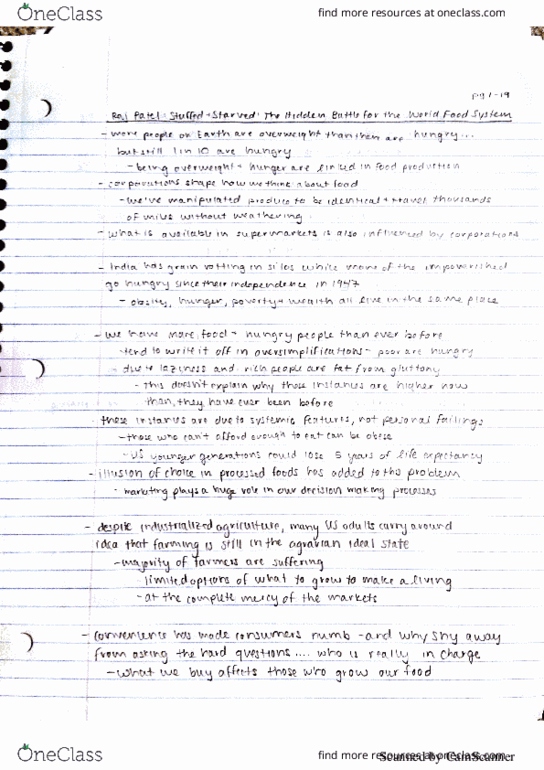 OneClass
find more resources at oneclass.com
pg 1-19
Raj Patel: Stuffed + Starved: The Hidden Battle for the World Food System
- more people on Earth are overweight than them are hungry...
but still 1 in 10 are hungry
- being overweight + hunger are linked in food production
- corporations shape how we think about food
- we've manipulated produce to be identical + travel thousands
of miles without weathering
- what is available in supermarkets is also influenced by corporations
- India has grain rotting in silos while more of the impoverished
go hungry since their independence in 1947
- obsity, hunger, poverty + wealth all live in the same place
- we have more food + hungry people than ever before
- tend to write it off in oversimplifications - poor are hungry
due + laziness and rich people are fat from gluttony
- this doesn't explain why those instances are higher now
than, they have ever been before
these instances are due to systemic features, not personal failings
- those who can't afford enough to eat can be obese
- US younger generations could lose 5 years of life expectancy
- illusion of choice in processed foods has added to this problem
- marketing plays a huge role in our decision making processes
- despite industrialized agriculture, many US adults carry around
idea that farming is still in the agrarian ideal state
- majority of farmers are suffering
- limited options of what to grow to make a living
- at the complete mercy of the markets
- convenience has made consumers numb - and why shy away
from asking the hard questions .... who is really in charge
- what we buy affects those who grow our food
OneClass
find more resources at oneclass.com
Scanned by CamScanner